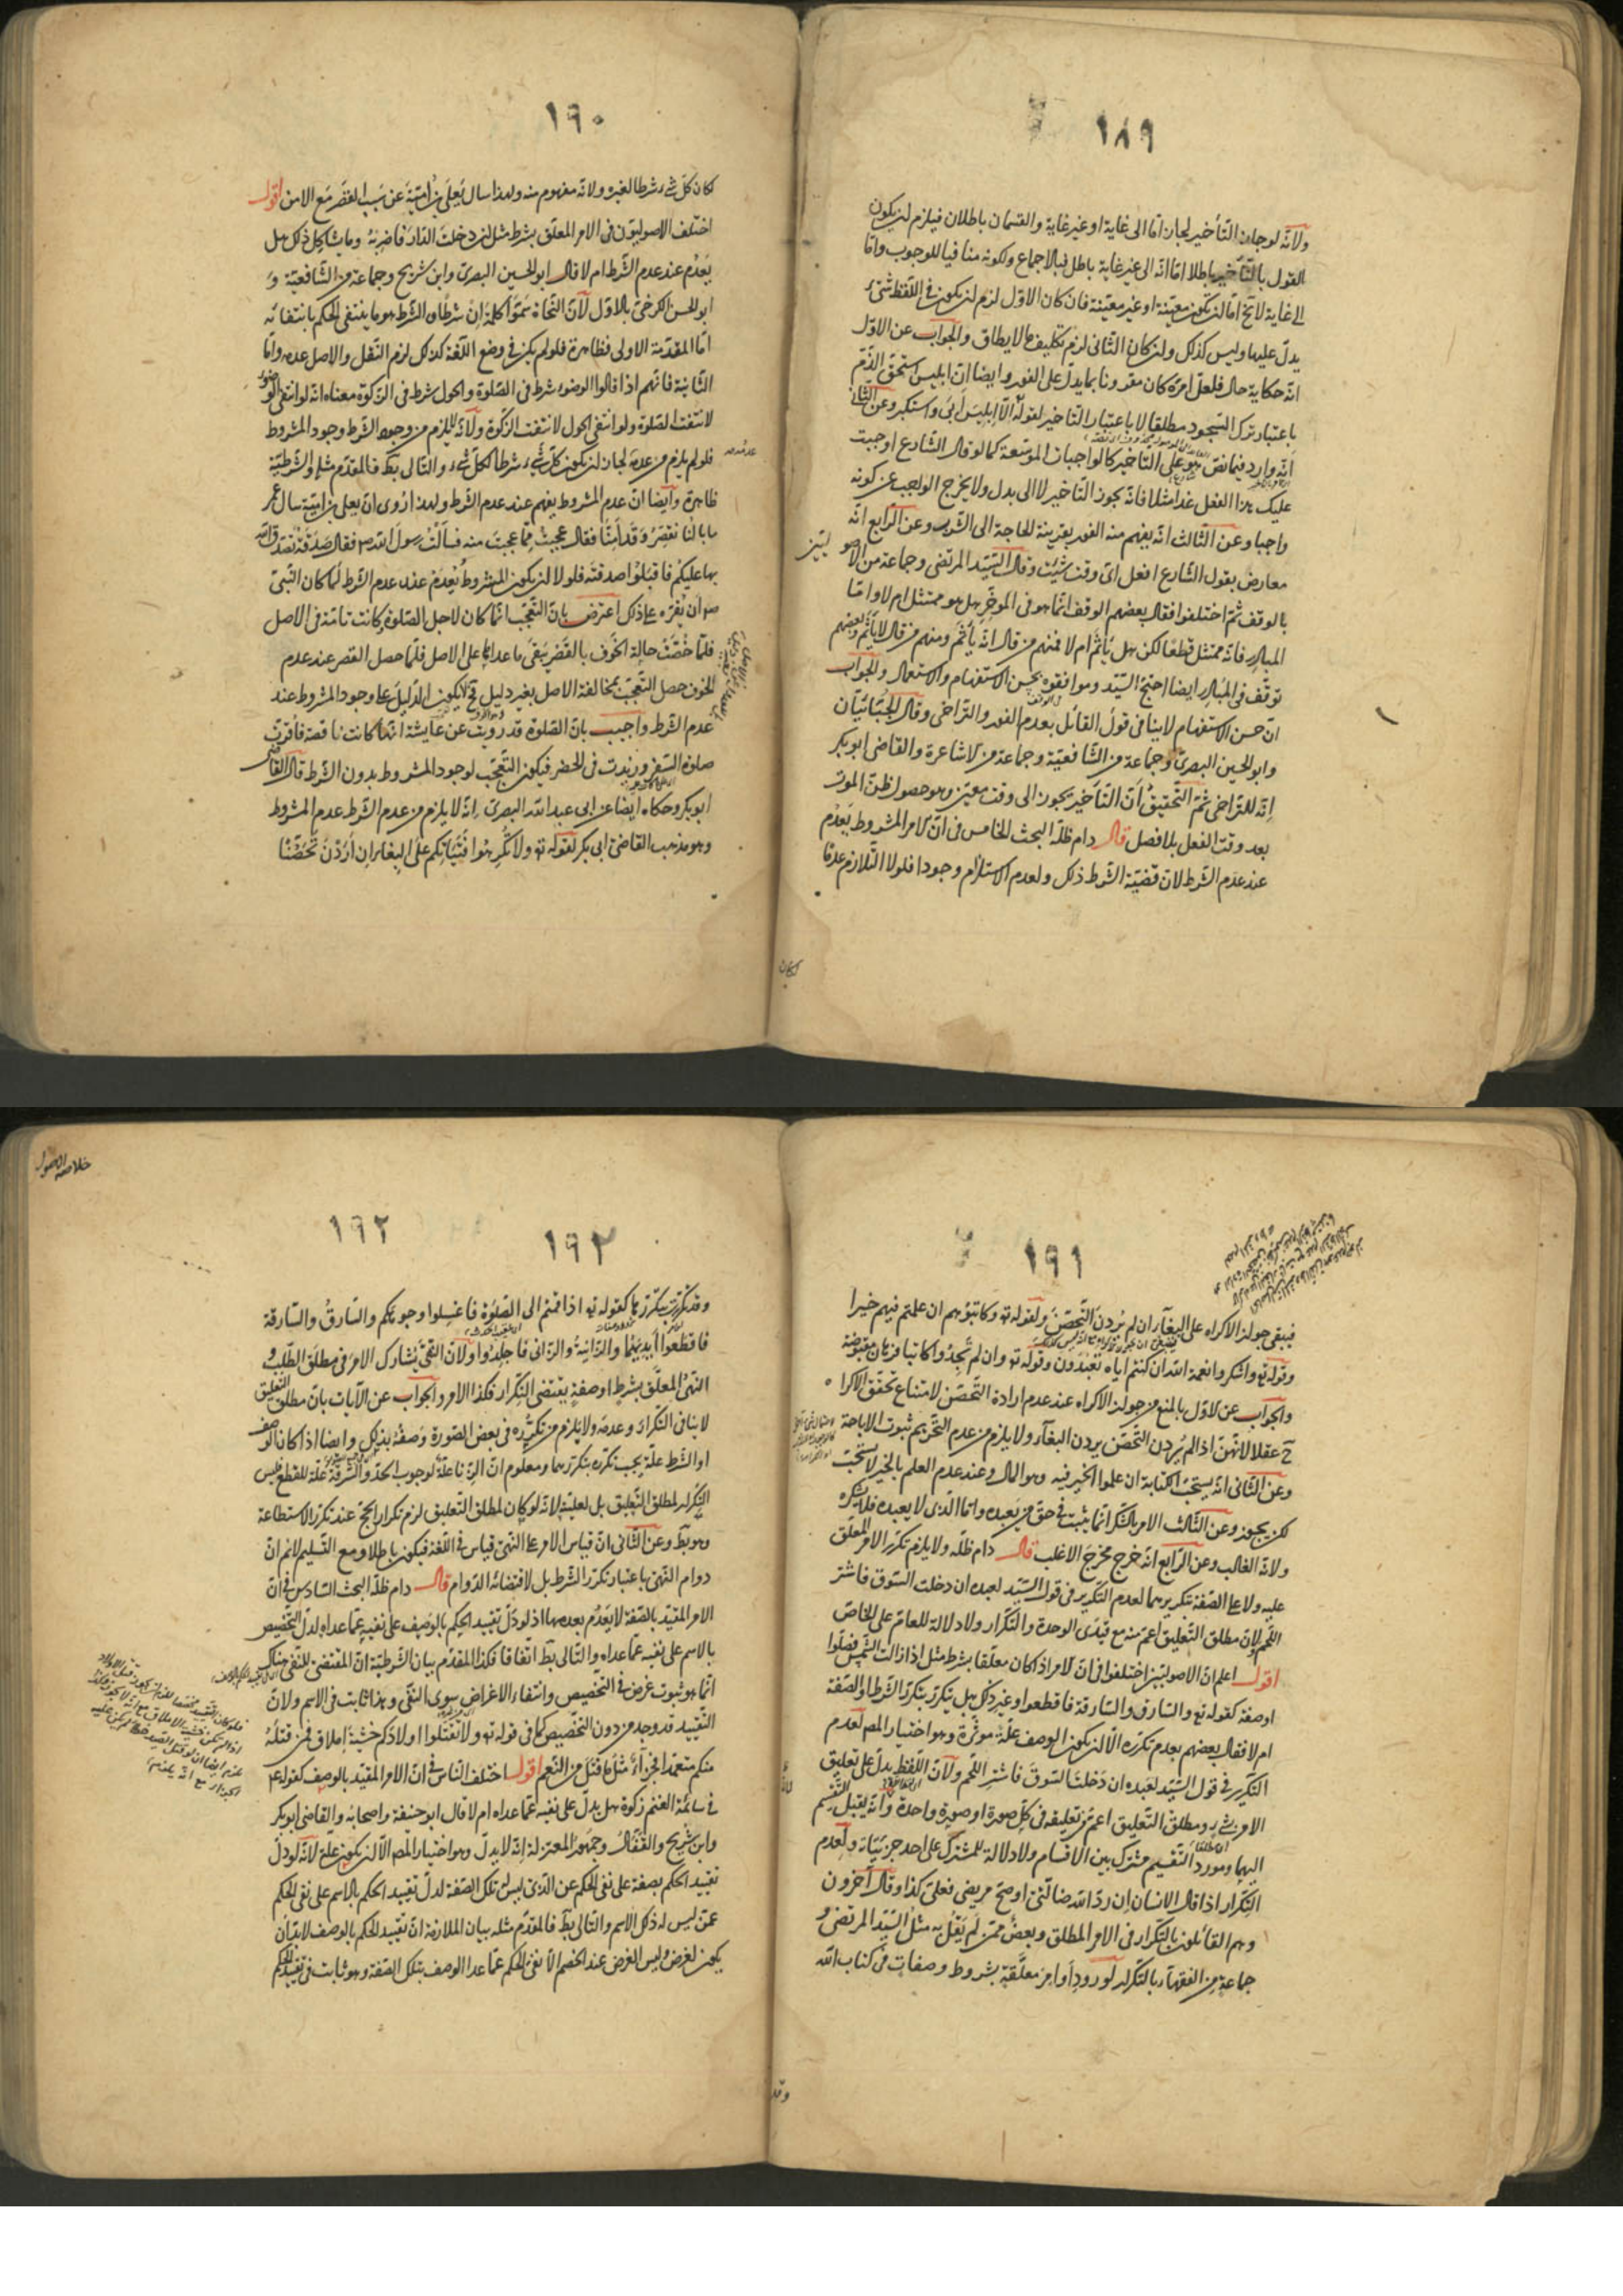 ١٨٩
ولانه لو جاز التأخير لجاز اما الى غاية او غير غاية والقسمان باطلان فيلزم ان يكون
القول بالتأخير باطلا اما انه الى غير غاية باطل فبالاجماع ولكونه منافيا للوجوب واما
الى غاية لانه اما ان تكون معينة او غير معينة فان كان الاول لزم ان يكون في اللفظ شئ
يدل عليها وليس كذلك وان كان الثاني لزم تكليف ما لا يطاق والجواب عن الاول
انه حكاية حال فلعل امره كان مقرونا بما يدل على الفور وايضا ان ابليس استحق الذم
باعتبار ترك السجود مطلقا لا باعتبار التاخير لقوله الا ابليس ابى واستكبر وعن الثاني
انه وارد فيما نص هو على التاخير كالواجبات الموسعة كما لو قال الشارع اوجبت
عليك هذا الفعل غدا مثلا فانه يجوز التاخير لا الى بدل ولا يخرج الواجب عن كونه
واجبا وعن الثالث انه يفهم منه الفور بقرينة الحاجة الى الشرب وعن الرابع انه
معارض بقول الشارع افعل اى وقت شئت وقال السيد المرتضى وجماعة من الاصوليين
بالوقف ثم اختلفوا فقال بعضهم الوقف انما هو في الموخر هل هو ممتثل ام لا واما
المبادر فانه ممتثل قطعا لكن هل يأثم ام لا فمنهم من قال انه يأثم ومنهم من قال لا يأثم وبعضهم
توقف في المبادر ايضا احتج السيد وموافقوه بحسن الاستفهام والاستعمال والجواب
ان حسن الاستفهام لا ينافى قول القائل بعدم الفور والتراخى وقال الجبائيان
وابو الحسين البصرى وجماعة من الشافعية وجماعة من الاشاعرة والقاضى ابو بكر
انه للتراخى ثم التحقيق ان التأخير يجوز الى وقت معين وهو حصول ظن الموت
بعد وقت الفعل بلا فصل قال دام ظله البحث الخامس في ان الامر المشروط يعدم
عند عدم الشرط لان قضية الشرط ذلك ولعدم الاستلزام وجودا فلولا التلازم عدما
لكان
١٩٠
لكان كل شئ شرطا لغيره ولانه مفهوم منه ولهذا سال يعلى بن امية عن سبب القصر مع الامن اقول
اختلف الاصوليون في الامر المعلق بشرط مثل ان دخلت الدار فاضربه وما يشاكل ذلك هل
يعدم عند عدم الشرط ام لا قال ابو الحسين البصرى وابن شريح وجماعة من الشافعية و
ابو الحسن الكرخى بالاول لان النحاة سموا كلمة ان شرطا والشرط هو ما ينتفى الحكم بانتفائه
اما المقدمة الاولى فظاهرة فلو لم يكن في وضع اللغة كذلك لزم النقل والاصل عدمه واما
الثانية فانهم اذا قالوا الوضوء شرط في الصلوة والحول شرط في الزكوة معناه انه لو انتفى الوضوء
لانتفت الصلوة ولو انتفى الحول لانتفت الزكوة ولانه لا يلزم من وجود الشرط وجود المشروط
فلو لم يلزم من عدمه لجاز ان يكون كل شئ شرطا لكل شئ والتالى بط فالمقدم مثله والشرطية
ظاهرة وايضا ان عدم المشروط يفهم عند عدم الشرط ولهذا روى ان يعلى بن امية سال عمر
ما بالنا نقصر وقد امنا فقال عجبت مما عجبت منه فسألت رسول الله ص فقال صدقة تصدق الله
بها عليكم فاقبلوا صدقته فلولا ان يكون المشروط يعدم عند عدم الشرط لما كان النبى
ص ان يقره على ذلك اعترض بان التعجب انما كان لاجل الصلوة كانت تامة في الاصل
فلما خصت حالة الخوف بالقصر يبقى ما عداها على الاصل فلما حصل القصر عند عدم
الخوف حصل التعجب بمخالفة الاصل بغير دليل فلا يكون الدليل على وجود المشروط عند
عدم الشرط واجيب بان الصلوة قد رويت عن عايشة انها كانت ناقصة فاقرت
صلوة السفر وزيدت في الحضر فيكون التعجب لوجود المشروط بدون الشرط قال القاضى
ابو بكر وحكاه ايضا عن ابى عبد الله البصرى انه لا يلزم من عدم الشرط عدم المشروط
وهو مذهب القاضى ابى بكر لقوله تع ولا تكرهوا فتياتكم على البغاء ان اردن تحصنا
١٩١
فيبقى جواز الاكراه على البغاء ان لم يردن التحصن ولقوله تع وكاتبوهم ان علمتم فيهم خيرا
وقوله تع واشكروا نعمة الله ان كنتم اياه تعبدون وقوله تع وان لم تجدوا كاتبا فرهان مقبوضة
والجواب عن الاول بالمنع من جواز الاكراه عند عدم ارادة التحصن لامتناع تحقق الاكراه
ح عقلا لانهن اذا لم يردن التحصن يردن البغاء ولا يلزم من عدم التحريم ثبوت الاباحة
وعن الثانى انه يستحب الكتابة ان علموا الخير فيه وهو المال وعند عدم العلم بالخير لا يستحب
لكن يجوز وعن الثالث الامر بالشكر انما يثبت في حق من يعبده واما الذى لا يعبده فلا يشكره
ولانه الغالب وعن الرابع انه خرج مخرج الاغلب قال دام ظله ولا يلزم تكرر الامر المعلق
عليه ولا على الصفة بتكريرهما لعدم التكرير في قول السيد لعبده ان دخلت السوق فاشتر
اللحم ولان مطلق التعليق اعم منه مع قيدى الوحدة والتكرار ولا دلالة للعام على الخاص
اقول اعلم ان الاصوليين اختلفوا في ان الامر اذا كان معلقا بشرط مثل اذا زالت الشمس فصلوا
او صفة كقوله تع والسارق والسارقة فاقطعوا وغير ذلك هل يتكرر بتكرر الشرط او الصفة
ام لا فقال بعضهم بعدم تكرره الا ان يكون الوصف علة مؤثرة وهو اختيار المصـ لعدم
التكرير في قول السيد لعبده ان دخلت السوق فاشتر اللحم ولان اللفظ يدل على تعليق
الامر بشئ ومطلق التعليق اعم من تعليقه في كل صورة او صورة واحدة وانه يقبل التقسيم
اليهما ومورد التقسيم مشترك بين الاقسام ولا دلالة للمشترك على احد جزئياته ولعدم
التكرار اذا قال الانسان ان رد الله ضالتى او صح مريضى فعلى كذا وقال آخرون
وهم القائلون بالتكرار في الامر المطلق وبعض ممن لم يقل به مثل السيد المرتضى و
جماعة من الفقهاء بالتكرار لورود اوامر معلقة بشروط وصفات في كتاب الله
وقد
خلاصة الاصول
١٩٢
١٩٢
وقد تكررت بتكررها كقوله تع اذا قمتم الى الصلوة فاغسلوا وجوهكم والسارق والسارقة
فاقطعوا ايديهما والزانية والزانى فاجلدوا ولان النهى يشارك الامر في مطلق الطلب و
النهى المعلق بشرط او صفة يقتضى التكرار فكذا الامر والجواب عن الآيات بان مطلق التعليق
لا ينافى التكرار وعدمه ولا يلزم من تكرره في بعض الصورة وصفه بذلك وايضا اذا كان الوصف
او الشرط علة يجب تكرره بتكررهما ومعلوم ان الزنا علة لوجوب الحد والسرقة علة للقطع فليس
التكرار لمطلق التعليق بل لعليته لانه لو كان لمطلق التعليق لزم تكرار الحج عند تكرر الاستطاعة
وهو بط وعن الثانى ان قياس الامر على النهى قياس في اللغة فيكون باطلا ومع التسليم لانم ان
دوام النهى باعتبار تكرر الشرط بل لاقتضائه الدوام قال دام ظله البحث السادس في ان
الامر المقيد بالصفة لا يعدم بعدمها اذ لو دل تقييد الحكم بالوصف على نفيه عما عداه لدل التخصيص
بالاسم على نفيه عما عداه والتالى بط اتفاقا فكذا المقدم بيان الشرطية ان المقتضى للنفى هناك
انما هو ثبوت غرض في التخصيص وانتفاء الاغراض سوى النفى وهذا ثابت في الاسم ولان
التقييد قد وجد من دون التخصيص كما في قوله تع ولا تقتلوا اولادكم خشية املاق فمن قتله
منكم متعمدا فجزاء مثل ما قتل من النعم اقول اختلف الناس في ان الامر المقيد بالوصف كقوله ع
في سائمة الغنم زكوة هل يدل على نفيه عما عداه ام لا قال ابو حنيفة واصحابه والقاضى ابو بكر
وابن شريح والقفال وجمهور المعتزلة انه لا يدل وهو اختيار المصـ الا ان يكون علة لانه لو دل
تقييد الحكم بصفة على نفى الحكم عن الذى ليس له تلك الصفة لدل تقييد الحكم بالاسم على نفى الحكم
عمن ليس له ذلك الاسم والتالى بط فالمقدم مثله بيان الملازمة ان تقييد الحكم بالوصف لابد ان
يكون لغرض وليس الغرض عند الخصم الا نفى الحكم عما عدا الوصف بتلك الصفة وهو ثابت في تقييد الحكم